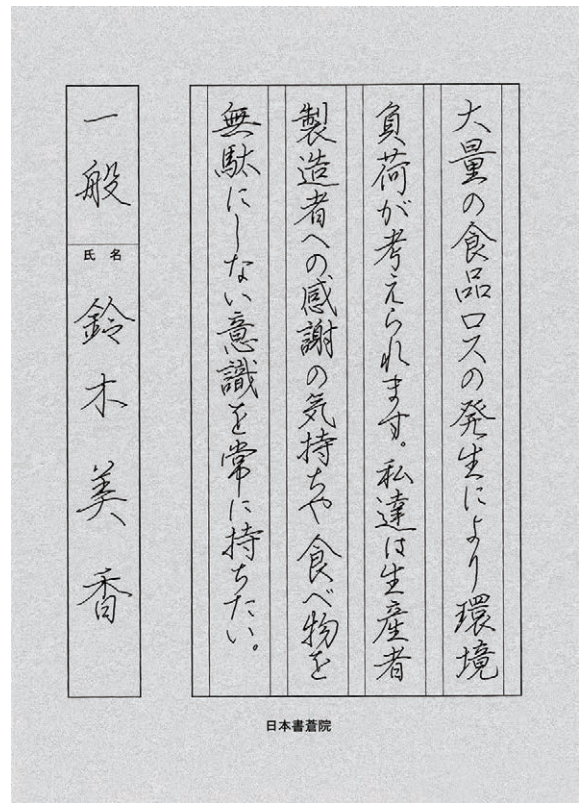 大量の食品ロスの発生により環境
負荷が考えられます。私達は生産者
製造者への感謝の気持ちや食べ物を
無駄にしない意識を常に持ちたい。
一般
氏名
鈴木美香
日本書蒼院